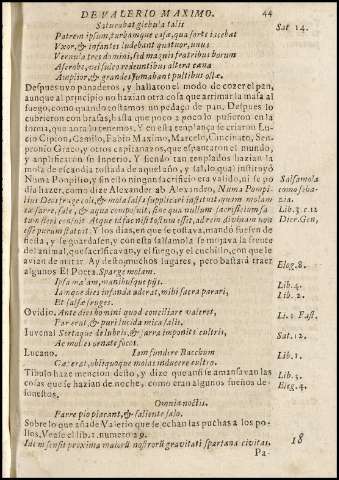 DE VALERIO MAXIMO. 44
Saturabat glebula talis
Patrem ipsum, turbamque casæ, qua fœta iacebat
Vxor, & infantes ludebant quatuor, unus
Vernula tres domini, sed magnis fratribus horum
A scrobe, vel sulco redeuntibus altera cœna
Amplior, & grandes fumabant pultibus ollæ.
Despues vuo panaderos, y hallaron el modo de cozer el pan,
aunque al principio no hazian otra cosa que arrimar la masa al
fuego, como quando tostamos un pedaço de pan. Despues lo
cubrieron con brasas, hasta que poco a poco lo pusieron en la
forma, que aora lo tenemos. Y en esta templança se criaron Lu-
cio Cipion, Camilo, Fabio Maximo, Marcelo, Cincinato, Sem-
pronio Graco, y otros capitanazos, que espantaron el mundo,
y amplificaron su Imperio. Y siendo tan templados hazian la
mola de escandia tostada de aquel año, y sal, lo qual instituyò
Numa Pompilio, y sin ello ningun sacrificio era valido, ni se po
dia hazer, como dize Alexander ab Alexandro, Numa Pompi-
lius Deos fruge coli, & mola salsa supplicari instituit quum molam
ex farre, sale, & aqua composuit, sine qua nullum sacrificium ra-
tum fieri censuit. Atque id far nisi tostum esset, ad rem divinam non
esse purum statuit. Y los dias, en que se tostava, mandò fuesen de
fiesta, y se guardasen, y con esta salsamola se mojava la frente
del animal, que sacrificavan, y el fuego, y el cuchillo, con que le
avian de matar. Ay desto muchos lugares, pero bastarà traer
algunos El Poeta. Sparge molam.
Ipsa molam, manibusque piis.
Iamque dies infanda aderat, mihi sacra parari,
Et salsæ fruges.
Ovidio. Ante deos homini quod conciliare valeret,
Far erat, & puri lucida mica salis.
Iuvenal Sertaque delubris, & farra imponite cultris,
Ac molles ornate focos.
Lucano. Iam fundere Bacchum
Cœperat, obliquoque molas inducere cultro.
Tibulo haze mencion desto, y dize que ansi se amansavan las
cosas que se hazian de noche, como eran algunos sueños de-
funestos.
Omnia noctis.
Farre pio placant, & saliente salo.
Sobre lo que añade Valerio que se echan las puchas a los po-
llos. Vease el lib. 1. numero 29.
Idem sensit proxima maiorũ nostrorũ gravitati spartana civitas. 18
Pa-
Sat 14.
Salsamola
como se ha-
zia.
Lib. 3. c 12
Dier. Gen,
Eglog. 8.
Lib. 4.
Lib. 2.
Li. 1 Fast.
Sat. 12.
Lib. 1.
Lib. 3.
Eleg. 4.